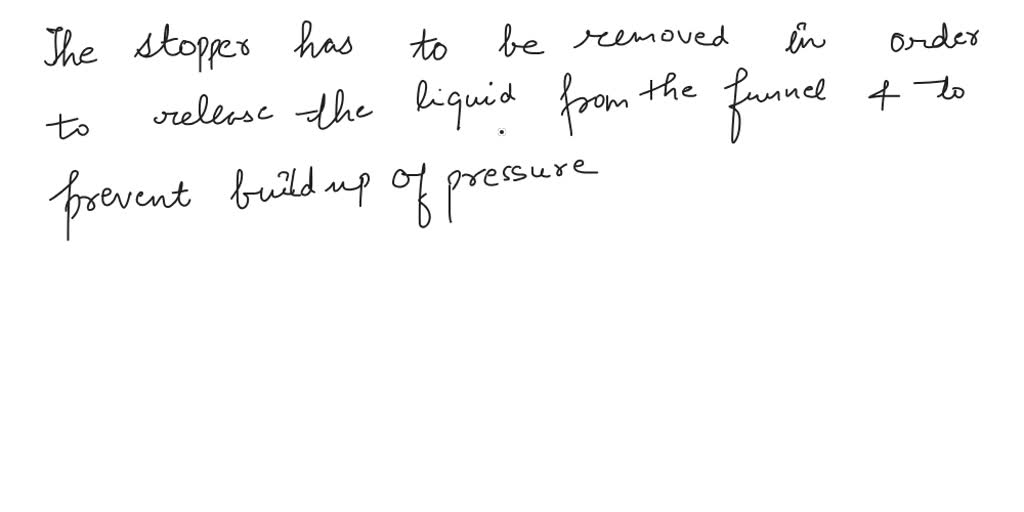 The stopper has to be removed in order
to release the liquid from the funnel & to
prevent build up of pressure